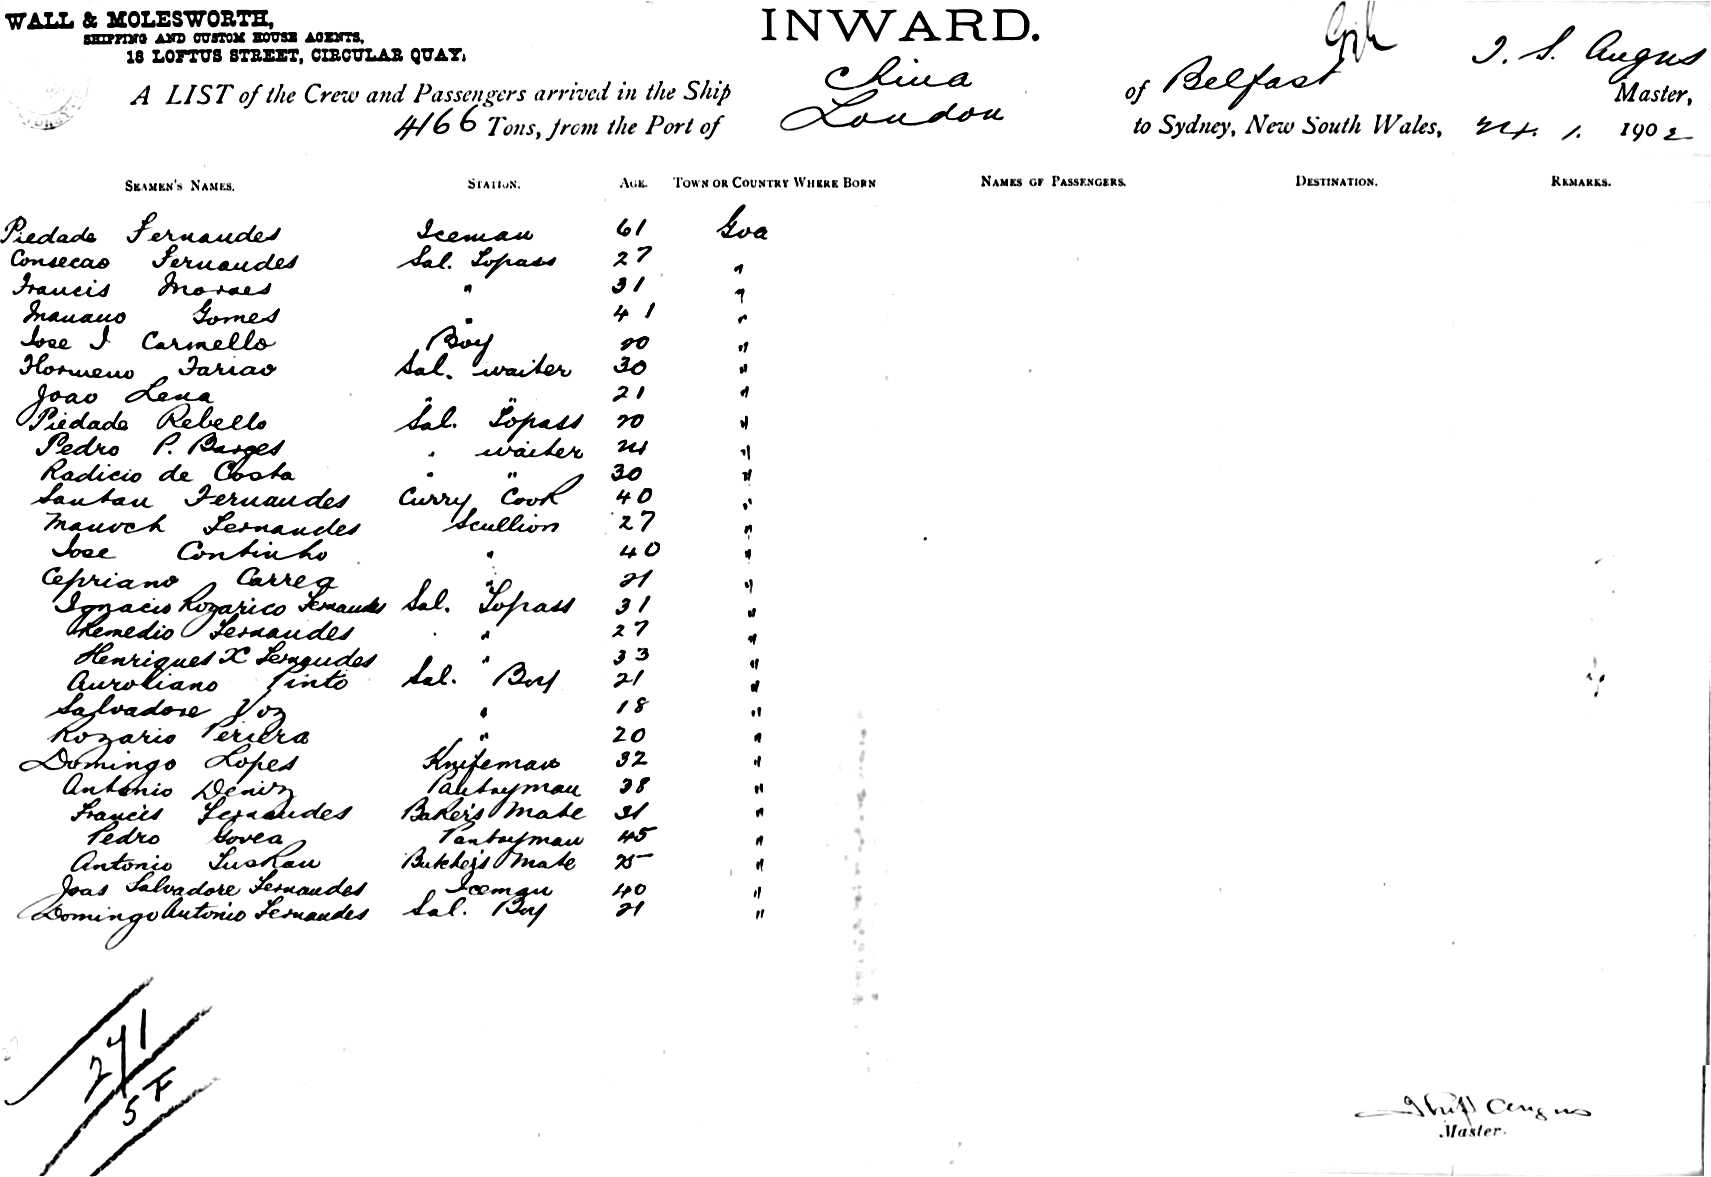 WALL & MOLESWORTH,
SHIPPING AND CUSTOM HOUSE AGENTS,
18 LOFTUS STREET, CIRCULAR QUAY.
INWARD.
A LIST of the Crew and Passengers arrived in the Ship China of Belfast J. S. Angus Master,
4166 Tons, from the Port of London to Sydney, New South Wales, 24. 1. 1902
SEAMEN'S NAMES. STATION. AGE. TOWN OR COUNTRY WHERE BORN NAMES OF PASSENGERS. DESTINATION. REMARKS.
Piedade Fernandes Iceman 61 Goa
Consecao Fernandes Sal. Topass 27 "
Francis Moraes " 31 "
Manano Gomes " 41 "
Jose J Carmello Boy 20 "
Hormeno Fariao Sal. waiter 30 "
Joao Lena " " 21 "
Piedade Rebello Sal. Topass 20 "
Pedro P. Barges " waiter 24 "
Radicio de Costa " " 30 "
Santan Fernandes Curry Cook 40 "
Manoch Fernandes Scullion 27 "
Jose Continho " 40 "
Cepriano Carrea " 21 "
Ignacis Rozarico Fernandes Sal. Topass 31 "
Remedio Fernandes " " 27 "
Henriques X Fernandes " 33 "
Auroliano Pinto Sal. Boy 21 "
Salvadore Voz " 18 "
Rozario Periera " 20 "
Domingo Lopes Knifeman 32 "
Antonio Deniz Pantryman 38 "
Francis Fernandes Baker's Mate 31 "
Pedro Govea Pantryman 45 "
Antonio Luskau Butcher's Mate 25 "
Joas Salvadore Fernandes Iceman 40 "
Domingo Antonio Fernandes Sal. Boy 21 "
241
57
Angus
Master.